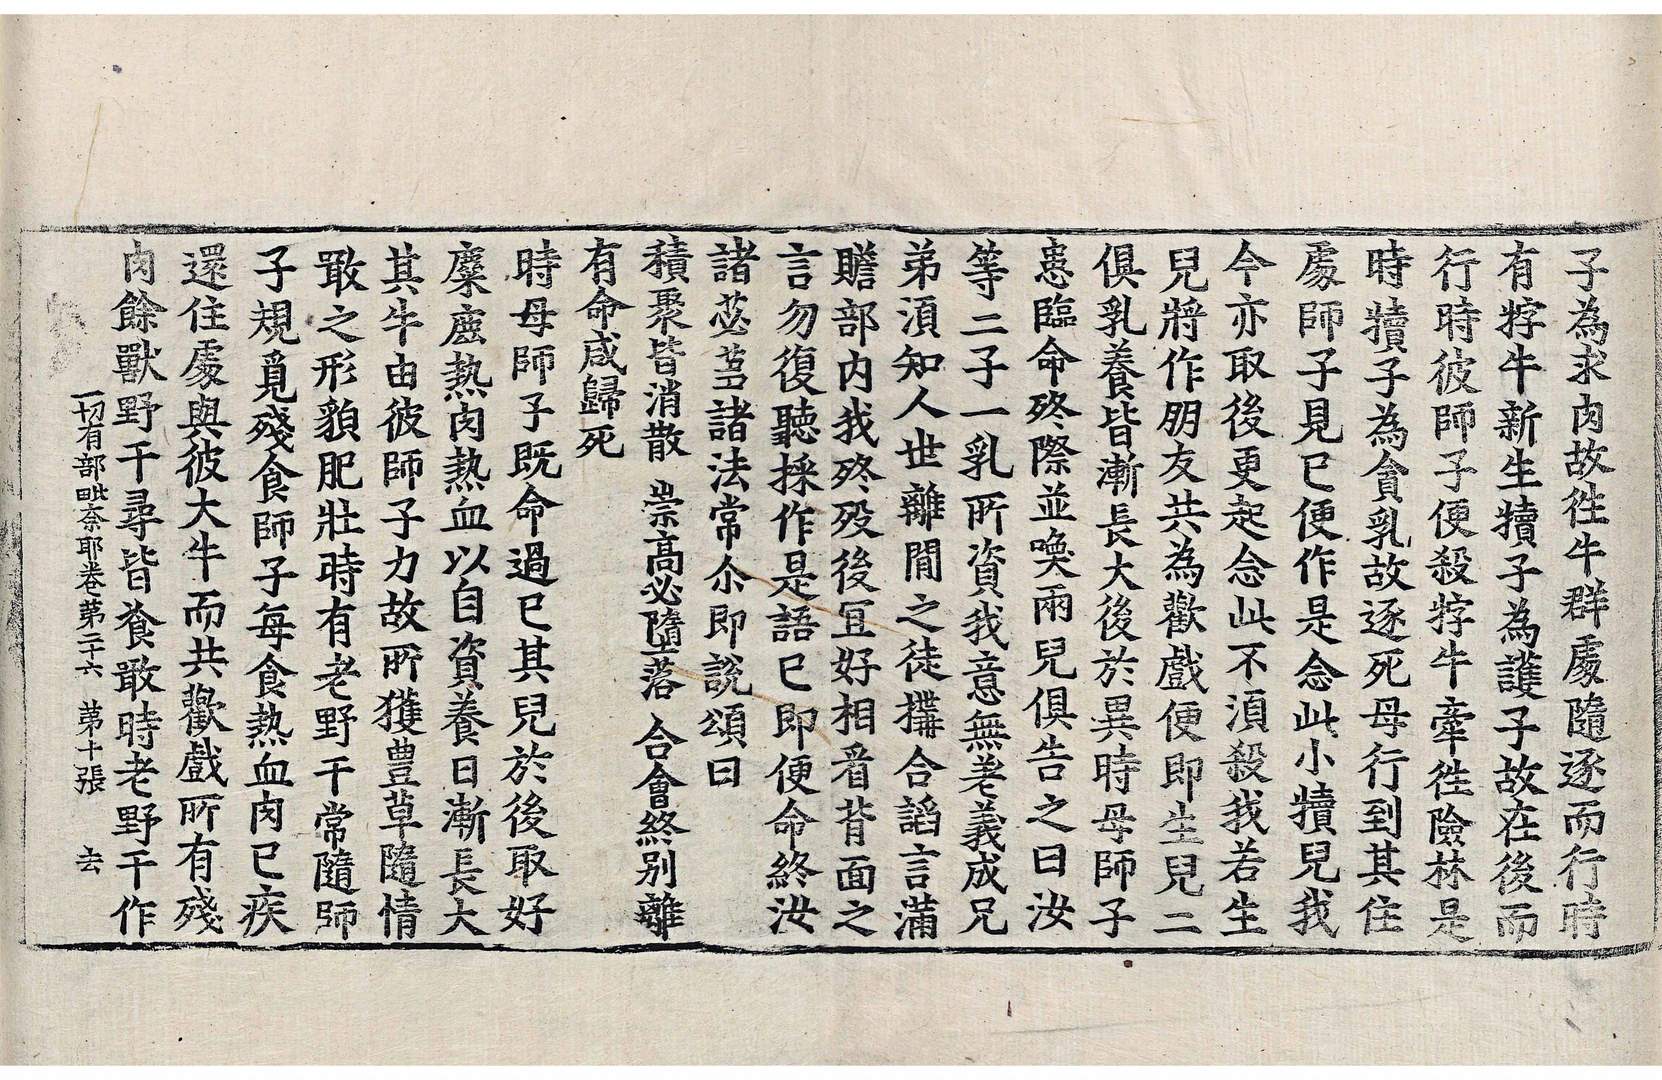 子為求肉故徃牛群處隨逐而行時
有牸牛新生犢子為護子故在後而
行時彼師子便殺牸牛牽徃險林是
時犢子為貪乳故逐死母行到其住
處師子見已便作是念此小犢兒我
今亦取後更起念此不湏殺我若生
兒將作朋友共為歡戲便即生兒二
俱乳養皆漸長大後於異時母師子
患臨命終際並喚兩兒俱告之曰汝
等二子一乳所資我意無差義成兄
弟湏知人世離間之徒搆合謟言滿
贍部內我終歿後冝好相看背面之
言勿復聽採作是語已即便命終汝
諸苾芻諸法常尒即說頌曰
積聚皆消散 崇高必墮落 合會終別離
有命咸歸死
時母師子既命過已其兒於後取好
麋鹿熱肉熱血以自資養日漸長大
其牛由彼師子力故所獲豊草隨情
噉之形貌肥壯時有老野干常隨師
子規覓殘食師子每食熱血肉已疾
還住處與彼大牛而共歡戲所有殘
肉餘獸野干尋皆飡噉時老野干作
一切有部毗柰耶卷第二十六 第十張 去